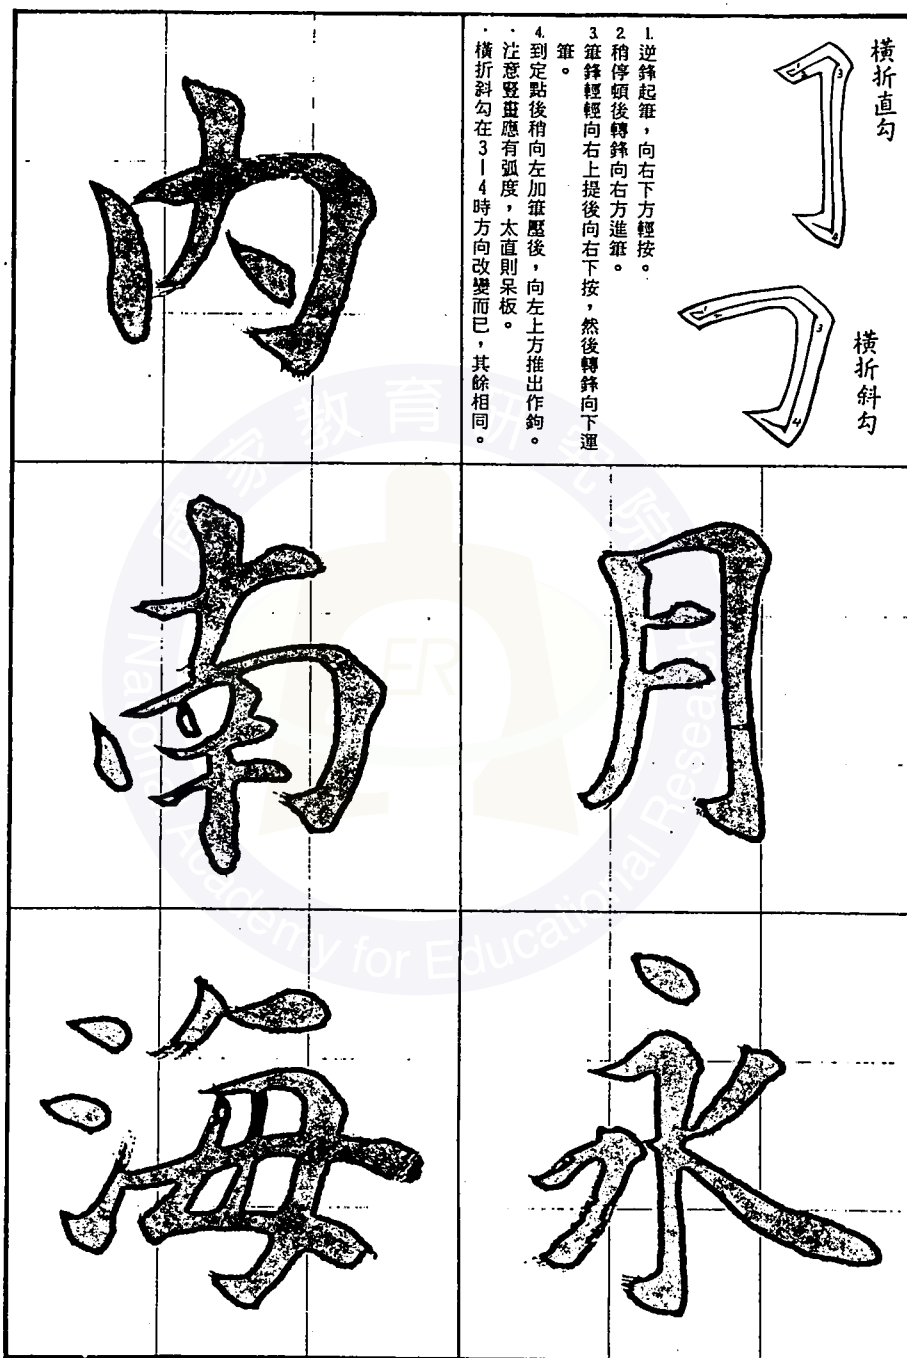 橫折直勾
橫折斜勾
1. 逆鋒起筆，向右下方輕按。
2. 稍停頓後轉鋒向右方進筆。
3. 筆鋒輕輕向右上提後向右下按，然後轉鋒向下運
筆。
4. 到定點後稍向左加筆壓後，向左上方推出作鉤。
·注意豎畫應有弧度，太直則呆板。
·橫折斜勾在3—4時方向改變而已，其餘相同。
月
永
內
南
海
國家教育研究院
National Academy for Educational Research